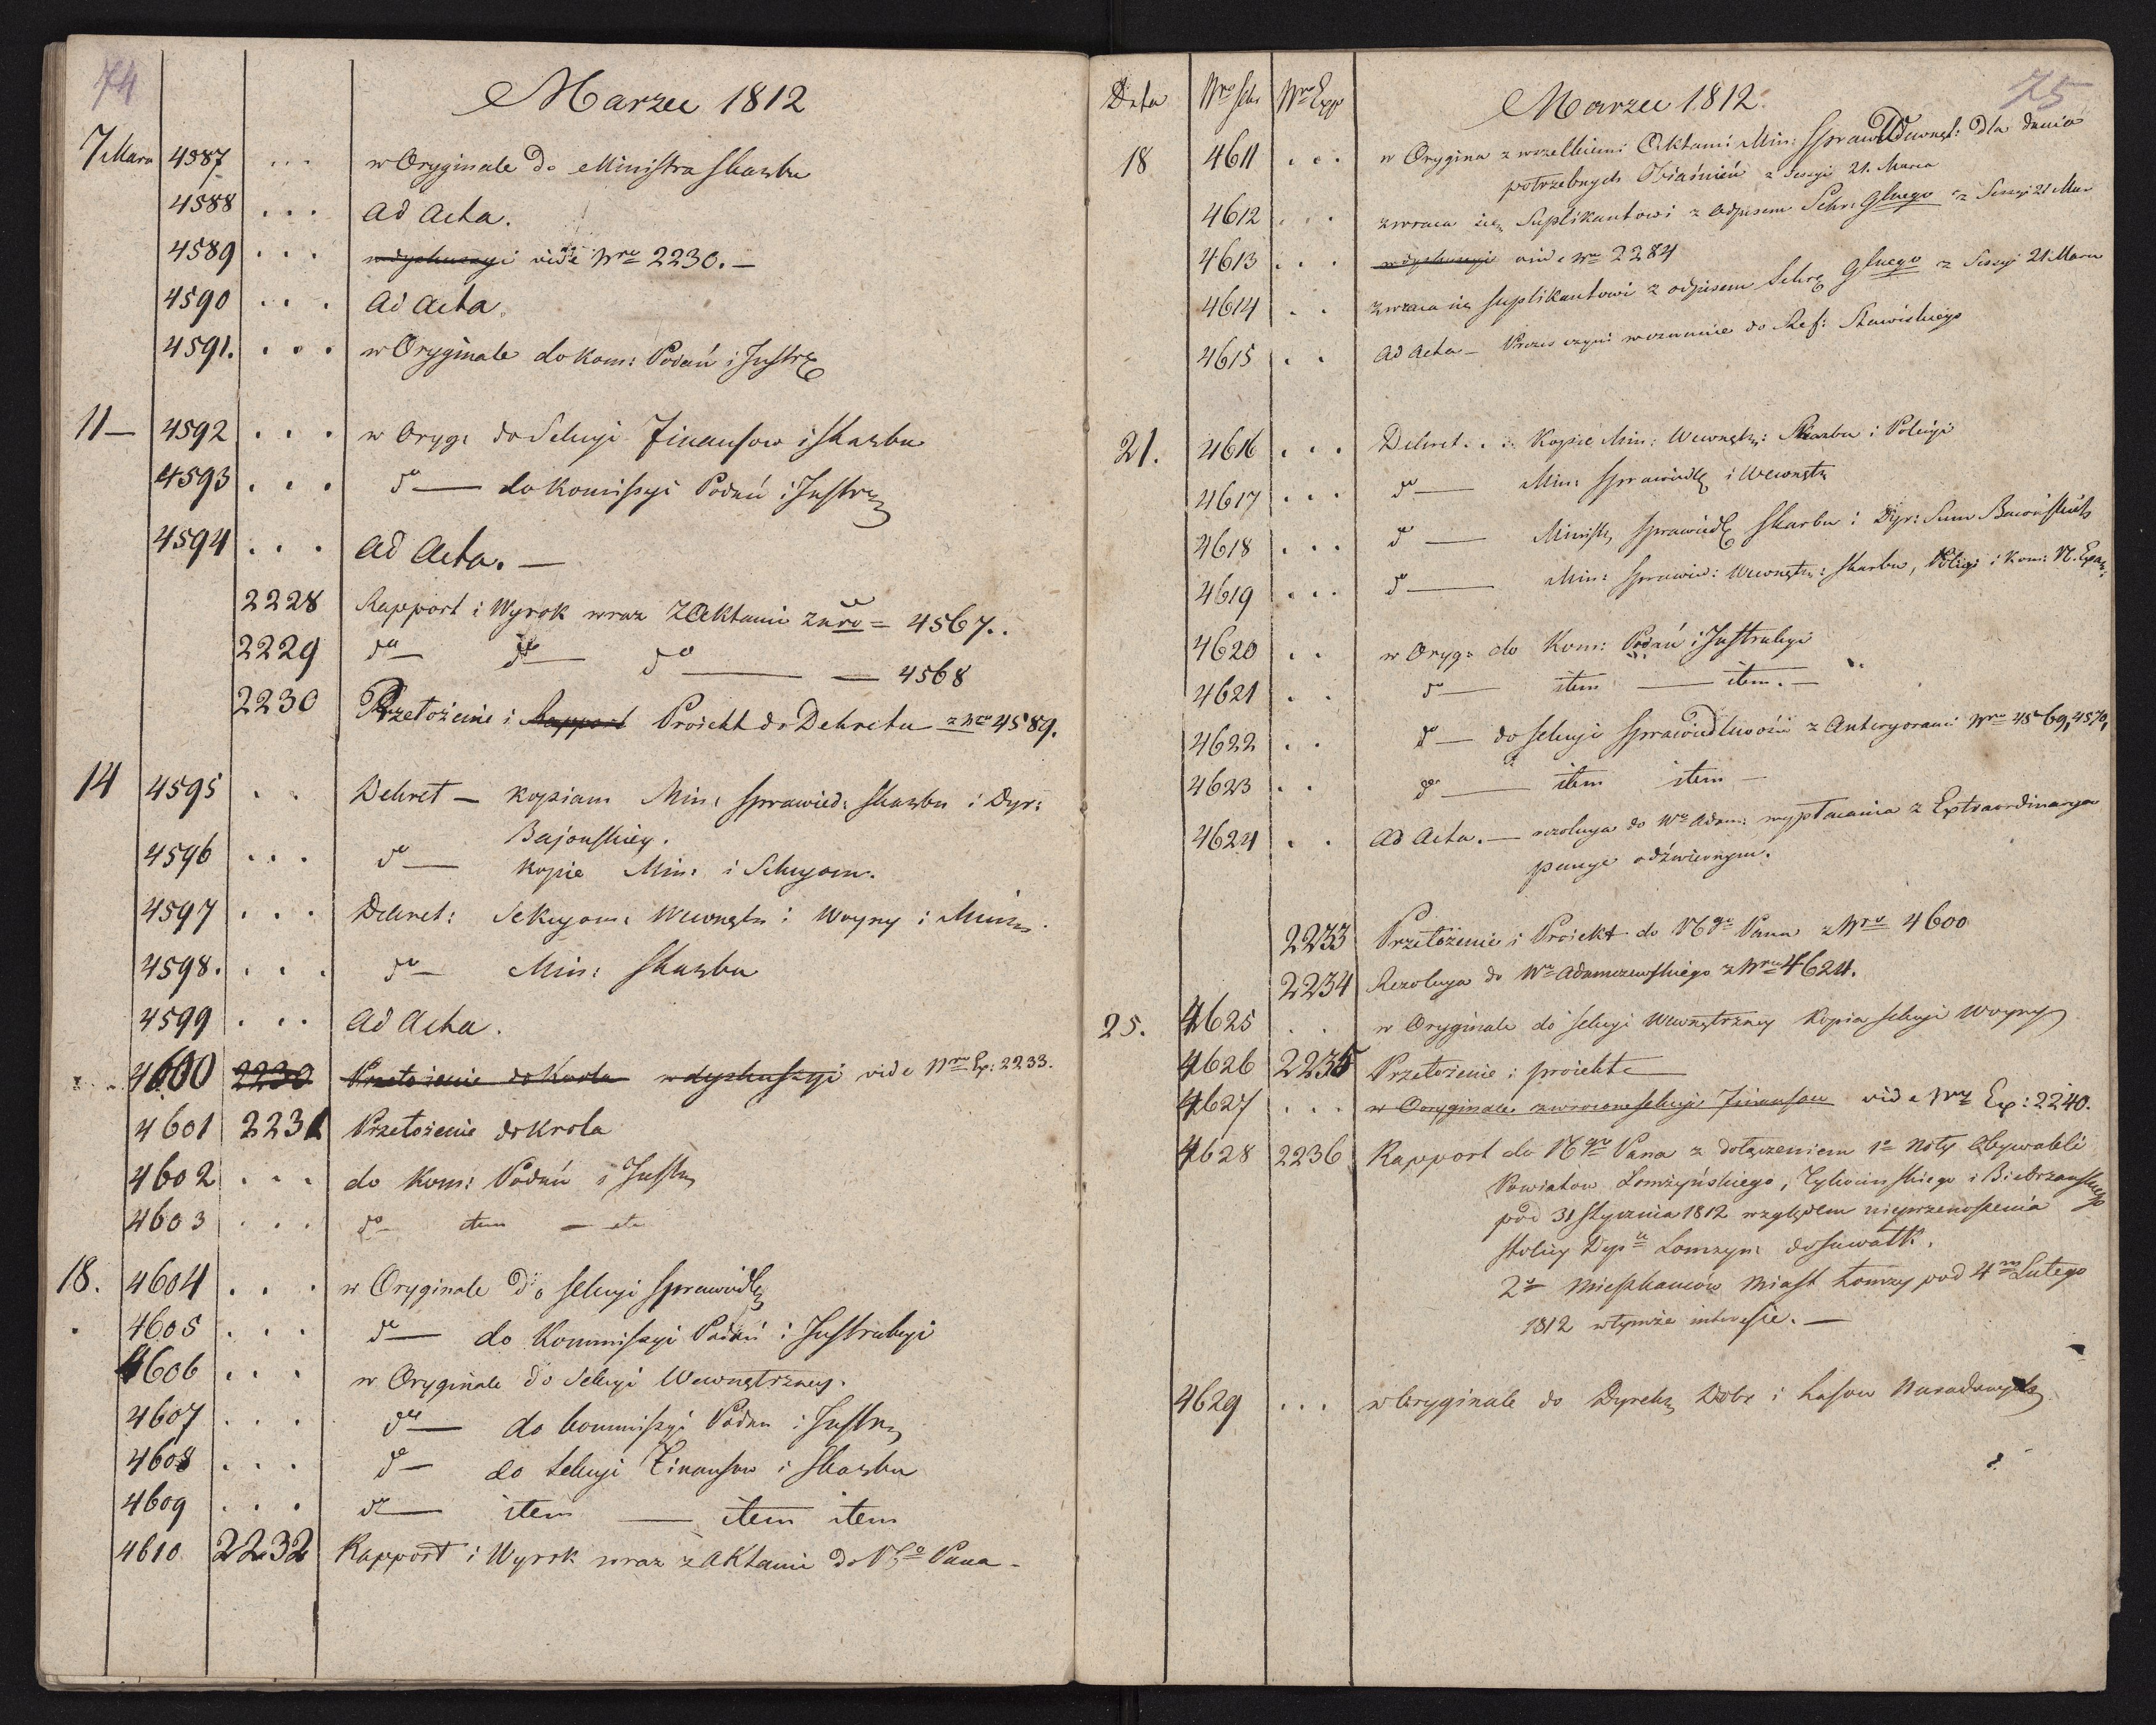 74
Marzec 1812
7 Marca 4587 ... w Oryginale do Ministra Skarbu
4588 ... Ad Acta.
4589 ... w dyskussyi vide Nro 2230. —
4590 ... Ad Acta.
4591. ... w Oryginale do Kom: Podań i Instr
11 — 4592 ... w Oryg: do Sekcyi Finansow i Skarbu
4593 ... do — do Komissyi Podań i Instr
4594 ... Ad Acta. —
2228 Rapport i Wyrok wraz z Aktami z Nro = 4567..
2229 do — do — do — — 4568
2230 Przełożenie i Rapport Proiekt do Dekretu z Nro 4589.
14 4595 .. Dekret — kopiam Min: Sprawied: Skarbu i Dyr:
Bajonskiey.
4596 ... do — kopie Min: i Sekcyom.
4597 ... Dekret: Sekcyom: Wewnętr i Woyny i Minis
4598. ... do — Min: Skarbu
4599 ... Ad Acta.
4600 2230 Przełożenie do Krola w dyskussyi vide Nro Exp: 2233.
4601 2231 Przełożenie do Krola
4602 ... do Kom: Podań i Instr
4603 ... do — item —
18. 4604 ... w Oryginale do Sekcyi Sprawiedl
4605 ... do — do Kommissyi Podań i Instrukcyi
4606 ... w Oryginale do Sekcyi Wewnętrzney.
4607 ... do — do Commissyi Podan i Instr
4608 ... do — do Sekcyi Finansow i Skarbu
4609 ... do — item — item item
4610 2232 Rapport i Wyrok wraz z Aktami do NGo Pana —
75
Data Nro Sek Nro Exp Marzec 1812.
18 4611 ... w Orygina z wszelkiemi Aktami Min: Spraw Wewnęt: dla dania
potrzebnych Obiaśnień z Sessyi 21. Marca
4612 ... zwraca się Suplikantowi z odpisem Sekr: Głnego z Sessyi 21 Mar
4613 ... w dyskussyi vide Nro 2284
4614 .. zwraca się suplikantowi z odpisem Sekr Głnego z Sessyi 21 Marca
4615 .. Ad Acta — Prezes czyni wezwanie do Ref: Stawiskiego
21. 4616 ... Dekret... Kopie Min: Wewnętrz: Skarbu i Policyi
4617 ... do — Min: Sprawiedl i Wewnętr
4618 ... do — Ministr Sprawiedl Skarbu i Dyr: Sum Baiońskich
4619 ... do — Min: Sprawied: Wewnętrz: Skarbu, Policyi i Kom: N.
4620 .. w Oryg: do Kom: Podań i Instrukcyi
4621 .. do — item — item. —
4622 .. do — do Sekcyi Sprawiedliwości z Anteryorami Nro 4569, 4570,
4623 .. do — item item —
4624 .. Ad Acta. — rezolucya do Wo Adam: wypłacania z Extraordinarya
pensye odźwiernym.
2233 Przełożenie i Proiekt do NGo Pana z Nro 4600
2234 Rezolucya do Wo Adamczewskiego z Nro 4624.
25. 4625 .. w Oryginale do Sekcyi Wewnętrzney Kopia Sekcyi Woyny
4626 2235 Przełożenie i proiekt —
4627 ... w Oryginale zwrocone Sekcyi Finansow vide Nro Exp: 2240.
4628 2236 Rapport do NGo Pana z dołączeniem 1o Noty Obywateli
Powiatow Łomżyńskiego, Tykocinskiego i Biebrzanskiego
pod 31 Stycznia 1812 względem nieprzenoszenia
stolicy Depu Łomżyn: do Suwałk.
2o Mieszkancow Miast Łomży pod 4m Lutego
1812 w tymże interesie. —
4629 ... w Oryginale do Dyrekc Dobr i Lasow Narodowych